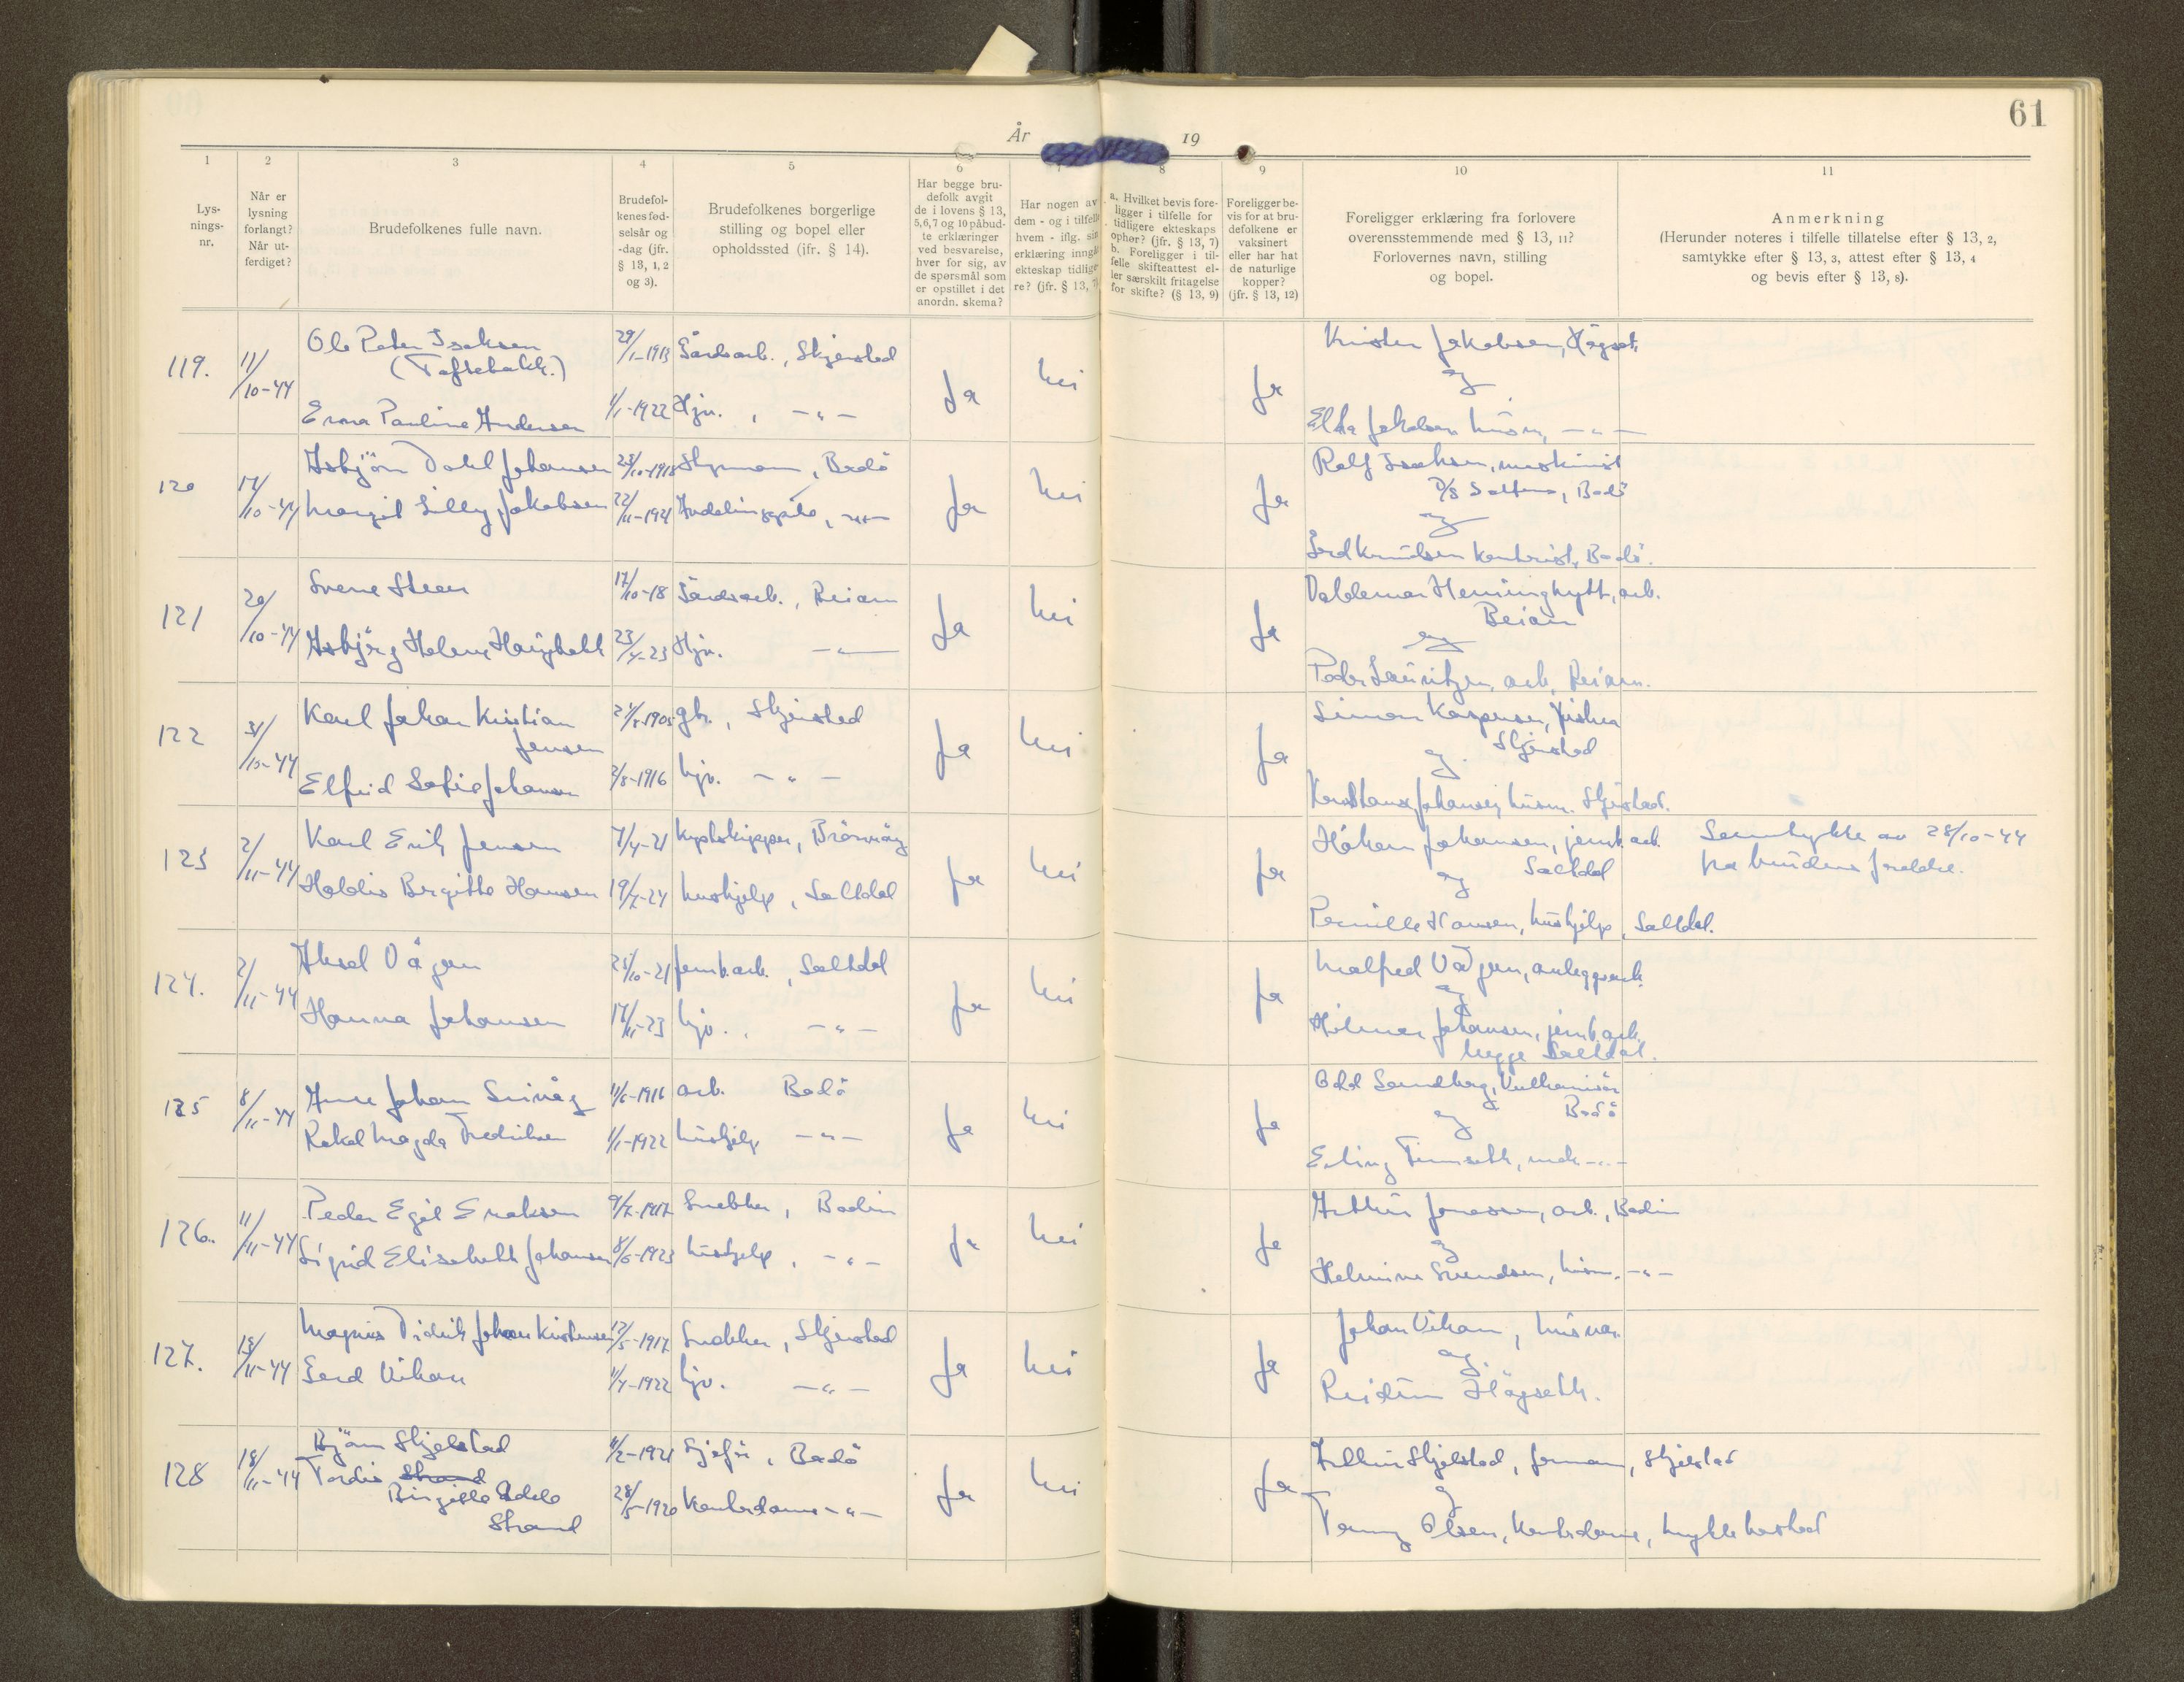 61
År 19
1 2 3 4 5 6 8 9 10 11
Lysnings-
nr.
Når er
lysning
forlangt?
Når ut-
ferdiget?
Brudefolkenes fulle navn.
Brudefol-
kenes fød-
selsår og
-dag (jfr.
§ 13, 1, 2
og 3).
Brudefolkenes borgerlige
stilling og bopel eller
opholdssted (ifr. § 14).
Har begge bru-
defolk avgit
de i lovens § 13,
5, 6, 7 og 10 påbud-
te erklæringer
ved besvarelse,
hver for sig, av
de spørsmål som
er opstillet i det
anordn. skema?
Har nogen av
dem - og i tilfelle
hvem - iflg. sin
erklæring inngå
ekteskap tidlige-
re? (jfr. § 13, 7)
a. Hvilket bevis fore-
ligger i tilfelle for
tidligere ekteskaps
ophør? (jfr. § 13, 7)
b. Foreligger i til-
felle skifteattest el-
ler særskilt fritagelse
for skifte? (§ 13, 9)
Foreligger be-
vis for at bru-
defolkene er
vaksinert
eller har hat
de naturlige
kopper?
(jfr. § 13, 12)
Foreligger erklæring fra forlovere
overensstemmende med § 13, 11?
Forlovernes navn, stilling
og bopel.
Anmerkning
(Herunder noteres i tilfelle tillatelse efter § 13, 2,
samtykke efter § 13, 3, attest efter § 13, 4
og bevis efter § 13, 8).
119. 11/10-44 Ole Peder Isaksen 29/1-1913 Gårdsarb., Skjerstad Ja Nei Ja Jakobsen,
og
Erna Pauline Andersen 1/1-1922 Hjv., -"- Jakobsen husm, -"-
120 17/10-44 Asbjörn Dahl Johansen 23/10-1918 Styrmann, Bodö Ja Nei Ja Rolf Isaksen, maskinist
D/S Salten, Bodö
Margit Lilly Jakobsen 22/11-1921 -"-
og
Gerd Knudsen kontorist, Bodö.
121 20/10-44 Sverre Steen 17/10-18 Gårdsarb., Beiarn Ja Nei Ja arb.
Beiarn
Asbjörg Helene 23/4-23 Hjv. -"-
og
Peder Lauritzen, arb, Beiarn.
122 31/10-44 Karl Johan Kristian
Jensen gb., Skjerstad Ja Nei Ja Simon Kaspersen, fisker
Skjerstad
og
Elfrid Sofie Johansen 2/8-1916 hjv. -"-
Johansen, husm. Skjerstad.
123 2/11-44 Karl Erik Jensen 7/4-21 Ja Nei Ja Håkon Johansen, jernb.arb.
Saltdal
Samtykke av 28/10-44
fra brudens foreldre.
Birgitte Hansen hushjelp, Saltdal
og
Pernille Hansen, hushjelp, Saltdal.
124. 2/11-44 Aksel Vågen jernb.arb., Saltdal Ja Nei Ja Malfred Vågen, anleggsarb.
og
Hanna Johansen 17/11-23 hjv., -"-
Hilmar Johansen, jernb.arb.
begge Saltdal.
125 8/11-44 Arne Johan 11/6-1916 arb. Bodö Ja Nei Ja Odd Sandberg, Vulkanisör
Bodö
og
Rakel Magda Fredriksen 1/1-1922 hushjelp -"-
Erling -"-
126. 11/11-44 Peder Egil Eriksen 9/7-1917 Snekker, Bodin Ja Nei Ja Arthur Jonassen, arb., Bodin
og
Sigrid Elisabeth Johansen 8/6-1923 hushjelp, -"-
Helmine Svendsen, husm. -"-
127. 15/11-44 Magnus Didrik Johan Kristensen 12/5-1917 Snekker, Skjerstad Ja Nei Ja Johan Vikan,
og
Gerd Vikan 11/4-1922 hjv. -"-
Reidun Högseth.
128 18/11-44 Björn Skjelstad 11/2-1921 Sjåför, Bodö Ja Nei Ja Skjelstad, Skjelstad
Tordis Strand
Birgitte Adele
Strand 28/5-1920 Kontordame -"-
og
Olsen, Kontordame,